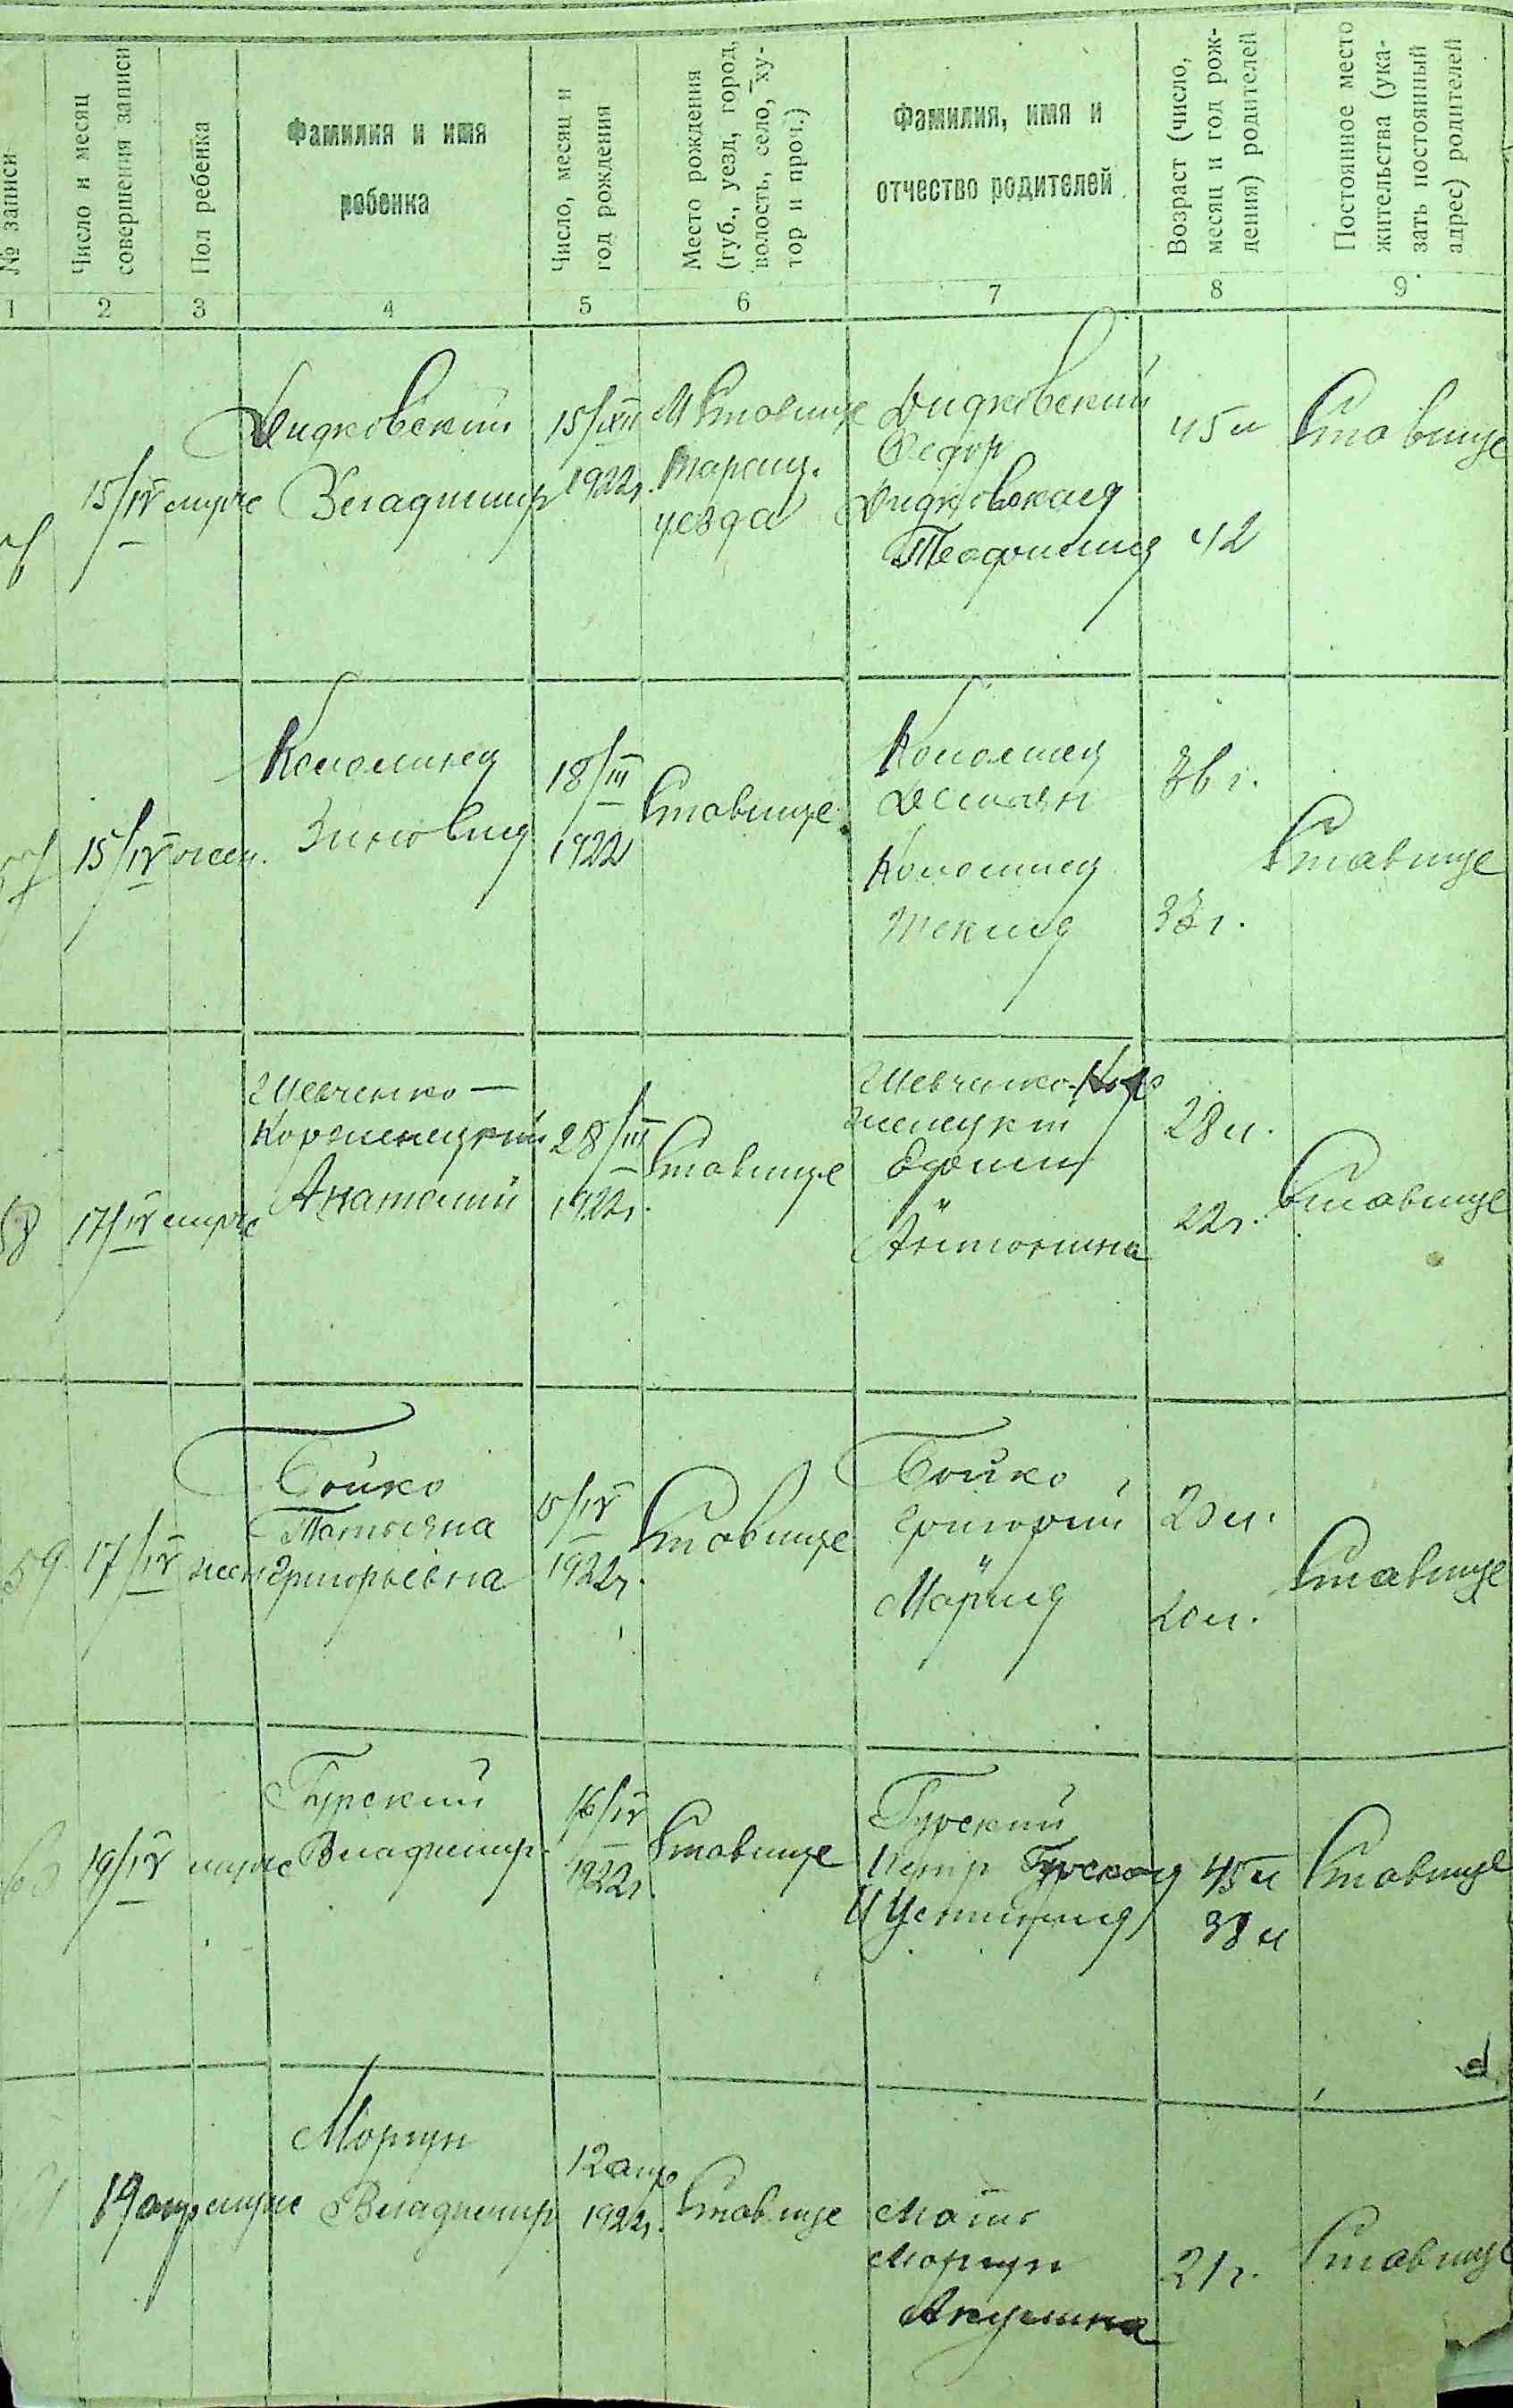 № записи
Число и месяц
совершения записи
Пол ребенка
Фамилия и имя
ребенка
Число, месяц и
год рождения
Место рождения
(губ., уезд, город,
волость, село, ху-
тор и проч.)
Фамилия, имя и
отчество родителей
Возраст (число,
месяц и год рож-
дения) родителей
Постоянное место
жительства (ука-
зать постоянный
адрес) родителей
1 2 3 4 5 6 7 8 9
15/IV муже
Дидковский
Владимир
1922г.
М Ставище
Таращ.
уезда
Дидковский
Федор
Дидковская
Теофилия
45 л
42
Ставище
15/IV жен.
Коломиец
Зиновия
18/III
1922
Ставище
Коломиец
Демьян
Коломиец
Текля
36 г.
Ставище
17/IV муже
Шевченко-
Корженецкий
Анатолий
28/III
1922г.
Ставище
Шевченко-Кор
женецкий
"
Антонина
28 л.
22г.
Ставище
59 17/IV жен
Бойко
Татьяна
Григорьевна
15/IV
1922г.
Ставище
Бойко
Григорий
"
Мария
20 л.
20 л.
Ставище
60 19/IV муже
Гурский
Владимир
16/IV
1922г.
Ставище
Гурский
Петр Гурская
Устиния
45 л
38 л
Ставище
19 апр муже
Моргун
Владимир
12 апр
1922г.
Ставище
Мать
Моргун
Акулина
21 г.
Ставище